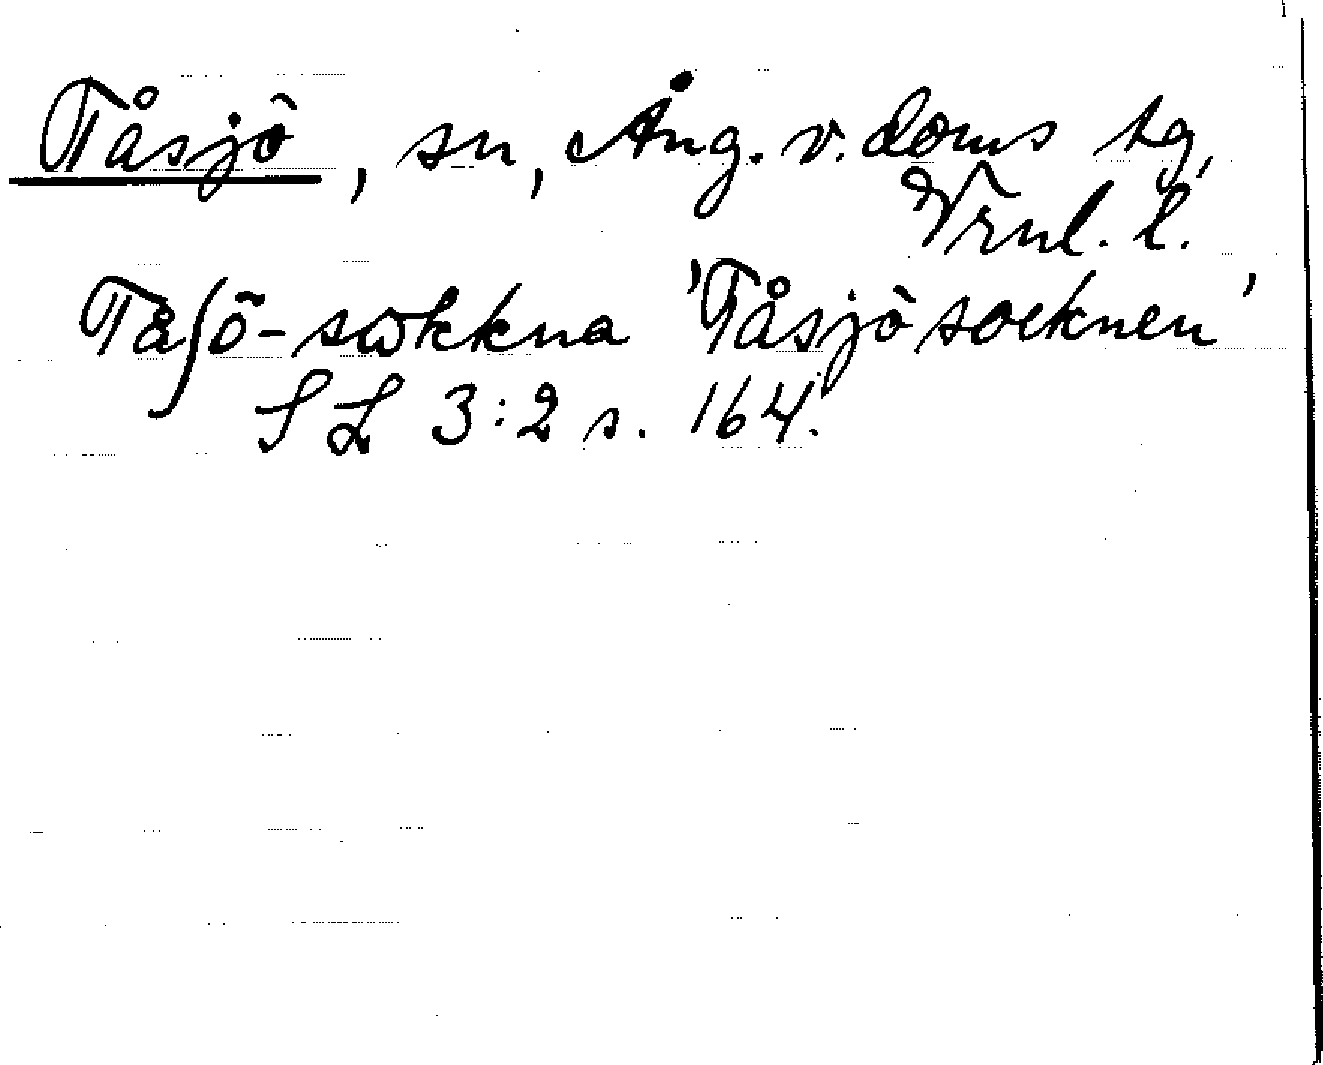 Tåsjö, sn, Ång. v. doms tg,
Vrnl. l.
Tåʃö-sωkkna 'Tåsjö socknen'
S L 3:2 s. 164.